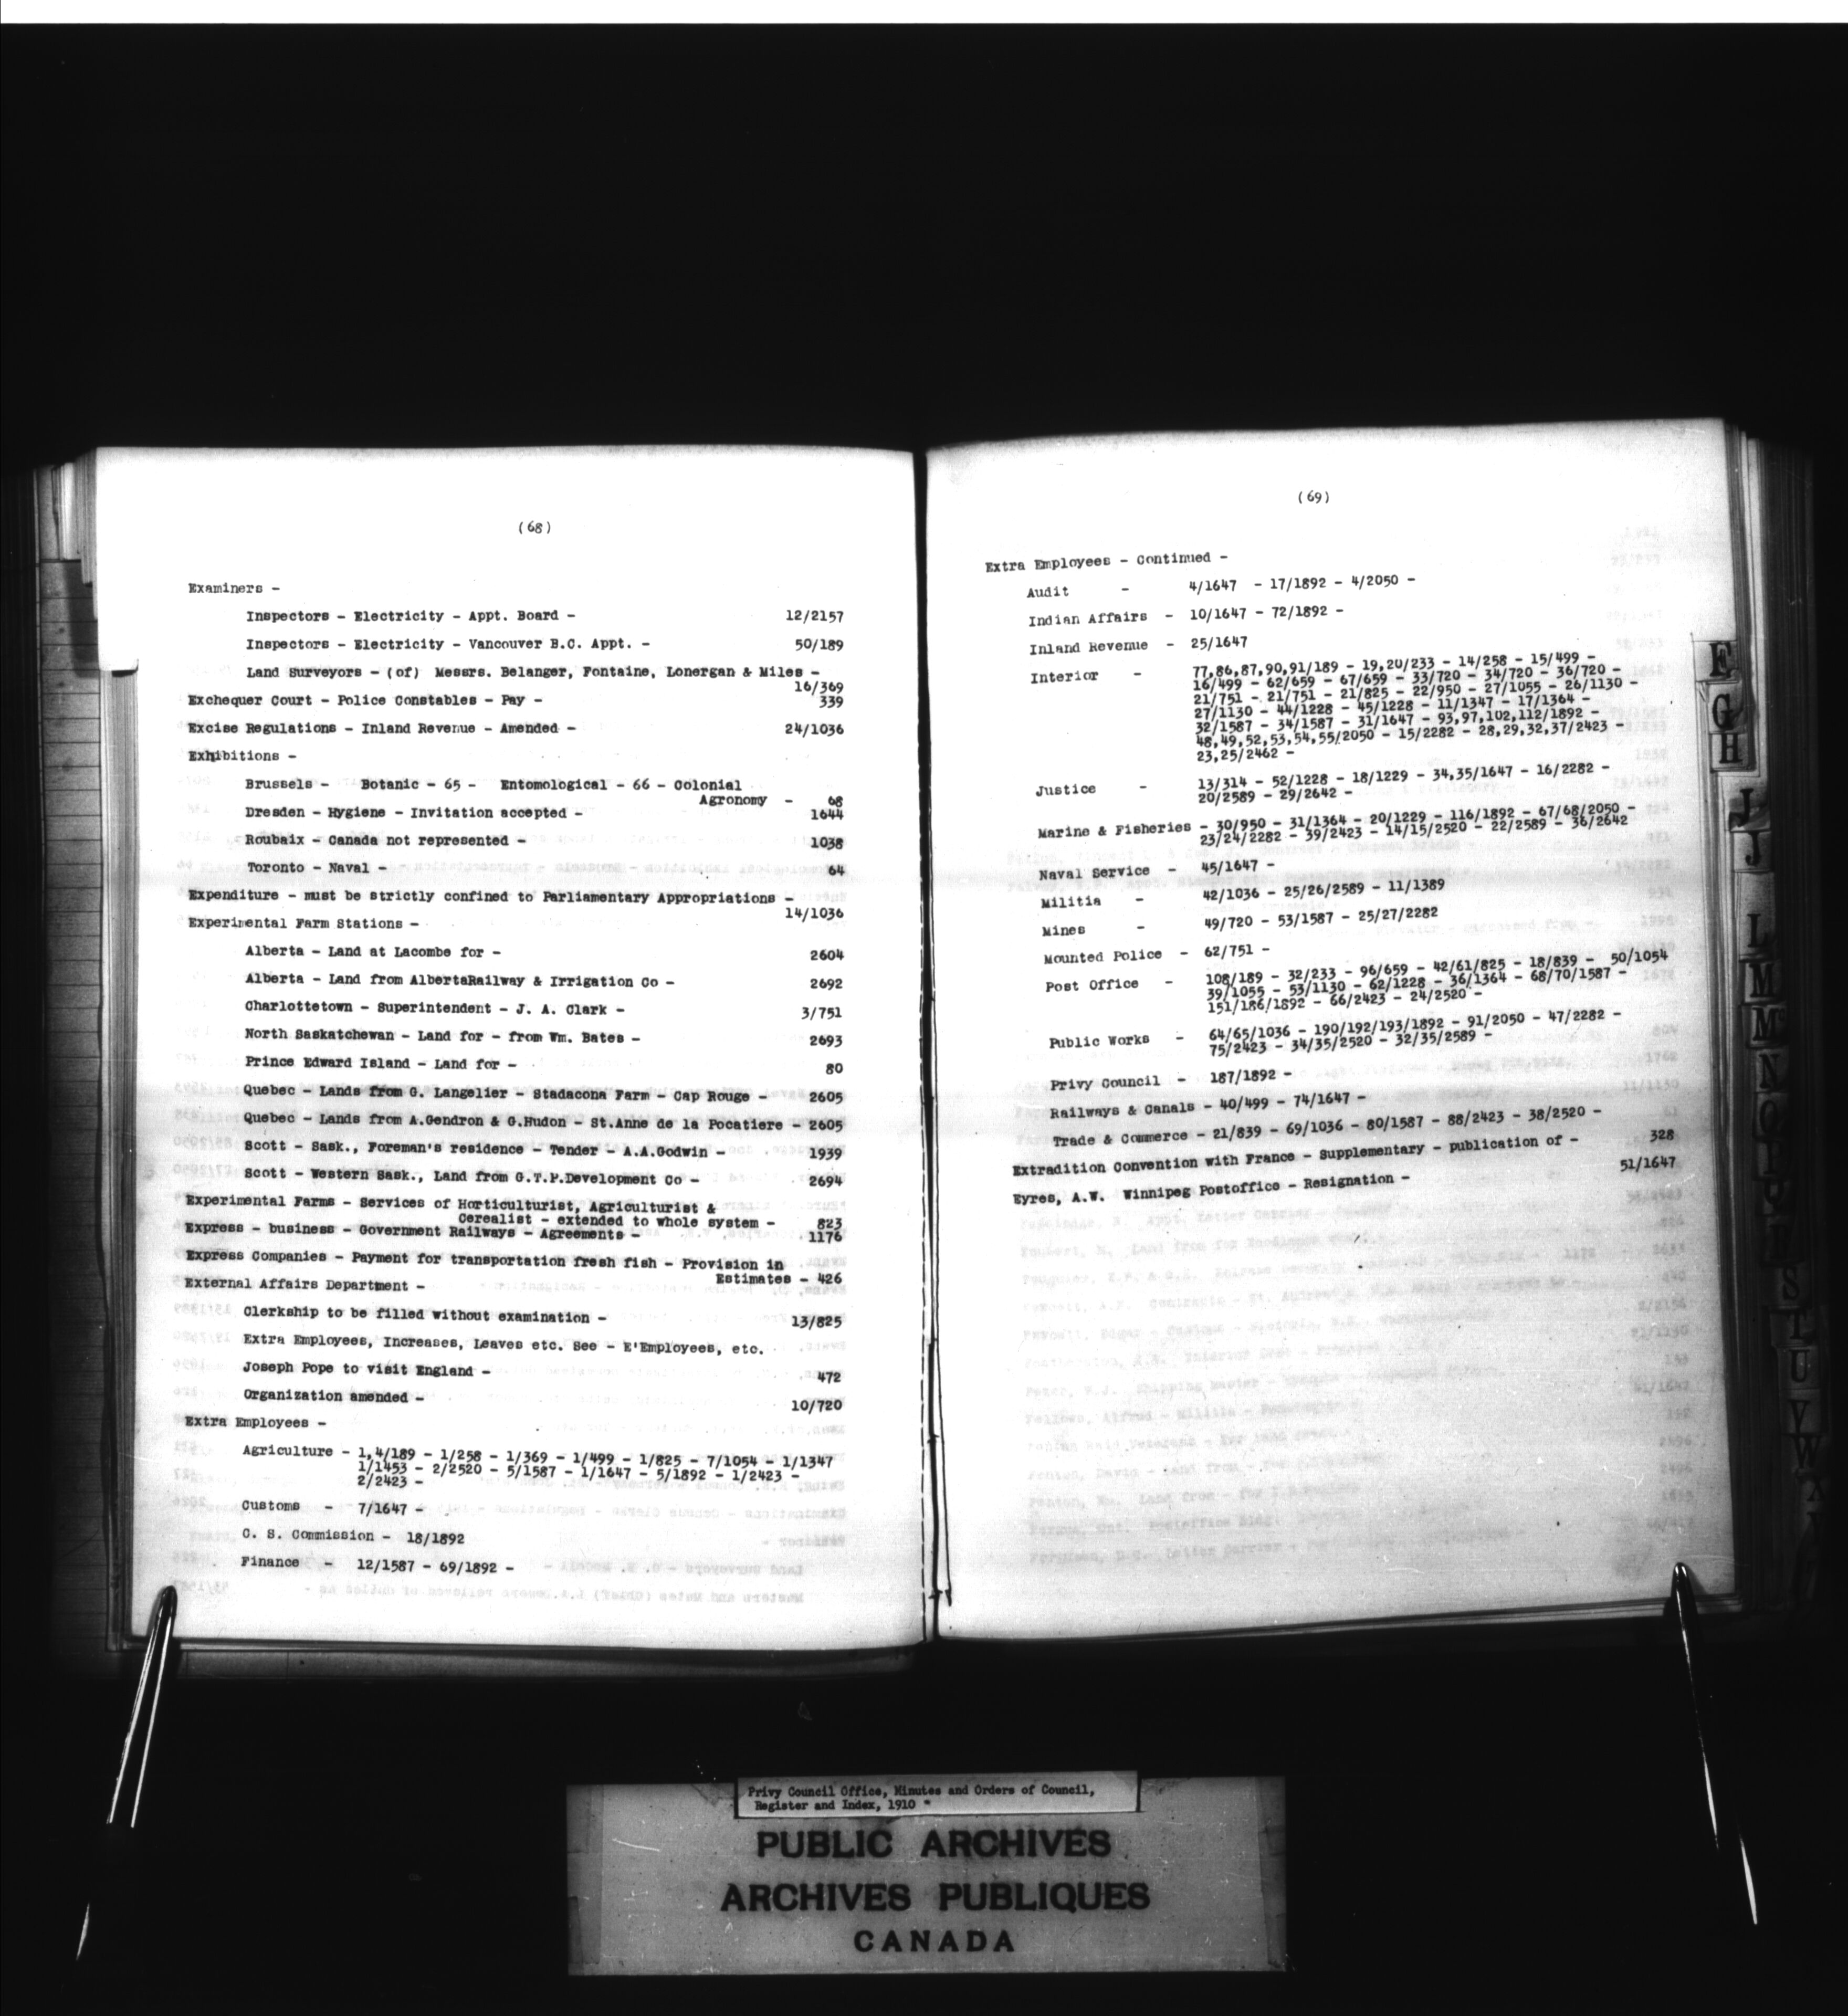 (68)
Examiners -
Inspectors - Electricity - Appt. Board - 12/2157
Inspectors - Electricity - Vancouver B.C. Appt. - 50/189
Land Surveyors - (of) Messrs. Belanger, Fontaine, Lonergan & Miles -
16/369
Exchequer Court - Police Constables - Pay - 339
Excise Regulations - Inland Revenue - Amended - 24/1036
Exhibitions -
Brussels - Botanic - 65 - Entomological - 66 - Colonial
Agronomy - 68
Dresden - Hygiene - Invitation accepted - 1644
Roubaix - Canada not represented - 1038
Toronto - Naval - 64
Expenditure - must be strictly confined to Parliamentary Appropriations -
14/1036
Experimental Farm Stations -
Alberta - Land at Lacombe for - 2604
Alberta - Land from AlbertaRailway & Irrigation Co - 2692
Charlottetown - Superintendent - J. A. Clark - 3/751
North Saskatchewan - Land for - from Wm. Bates - 2693
Prince Edward Island - Land for - 80
Quebec - Lands from G. Langelier - Stadacona Farm - Cap Rouge - 2605
Quebec - Lands from A.Gendron & G.Hudon - St.Anne de la Pocatiere - 2605
Scott - Sask., Foreman's residence - Tender - A.A.Godwin - 1939
Scott - Western Sask., Land from G.T.P.Development Co - 2694
Experimental Farms - Services of Horticulturist, Agriculturist &
Cerealist - extended to whole system - 823
Express - business - Government Railways - Agreements - 1176
Express Companies - Payment for transportation fresh fish - Provision in
Estimates - 426
External Affairs Department -
Clerkship to be filled without examination - 13/825
Extra Employees, Increases, Leaves etc. See - E'Employees, etc.
Joseph Pope to visit England - 472
Organization amended - 10/720
Extra Employees -
Agriculture - 1,4/189 - 1/258 - 1/369 - 1/499 - 1/825 - 7/1054 - 1/1347
1/1453 - 2/2520 - 5/1587 - 1/1647 - 5/1892 - 1/2423 -
2/2423 -
Customs - 7/1647 -
C. S. Commission - 18/1892
Finance - 12/1587 - 69/1892 -
(69)
Extra Employees - Continued -
Audit - 4/1647 - 17/1892 - 4/2050 -
Indian Affairs - 10/1647 - 72/1892 -
Inland Revenue - 25/1647
Interior - 77,86,87,90,91/189 - 19,20/233 - 14/258 - 15/499 -
16/499 - 62/659 - 67/659 - 33/720 - 34/720 - 36/720 -
21/751 - 21/751 - 21/825 - 22/950 - 27/1055 - 26/1130 -
27/1130 - 44/1228 - 45/1228 - 11/1347 - 17/1364 -
32/1587 - 34/1587 - 31/1647 - 93,97,102,112/1892 -
48,49,52,53,54,55/2050 - 15/2282 - 28,29,32,37/2423 -
23,25/2462 -
Justice - 13/314 - 52/1228 - 18/1229 - 34,35/1647 - 16/2282 -
20/2589 - 29/2642 -
Marine & Fisheries - 30/950 - 31/1364 - 20/1229 - 116/1892 - 67/68/2050 -
23/24/2282 - 39/2423 - 14/15/2520 - 22/2589 - 36/2642
Naval Service - 45/1647 -
Militia - 42/1036 - 25/26/2589 - 11/1389
Mines - 49/720 - 53/1587 - 25/27/2282
Mounted Police - 62/751 -
Post Office - 108/189 - 32/233 - 96/659 - 42/61/825 - 18/839 - 50/1054
39/1055 - 53/1130 - 62/1228 - 36/1364 - 68/70/1587 -
151/186/1892 - 66/2423 - 24/2520 -
Public Works - 64/65/1036 - 190/192/193/1892 - 91/2050 - 47/2282 -
75/2423 - 34/35/2520 - 32/35/2589 -
Privy Council - 187/1892 -
Railways & Canals - 40/499 - 74/1647 -
Trade & Commerce - 21/839 - 69/1036 - 80/1587 - 88/2423 - 38/2520 -
Extradition Convention with France - Supplementary - publication of - 328
Eyres, A.W. Winnipeg Postoffice - Resignation - 51/1647
F
G
H
J
L
M
N
S
T
U
V
W
Privy Council Office, Minutes and Orders of Council,
Register and Index, 1910 *
PUBLIC ARCHIVES
ARCHIVES PUBLIQUES
CANADA